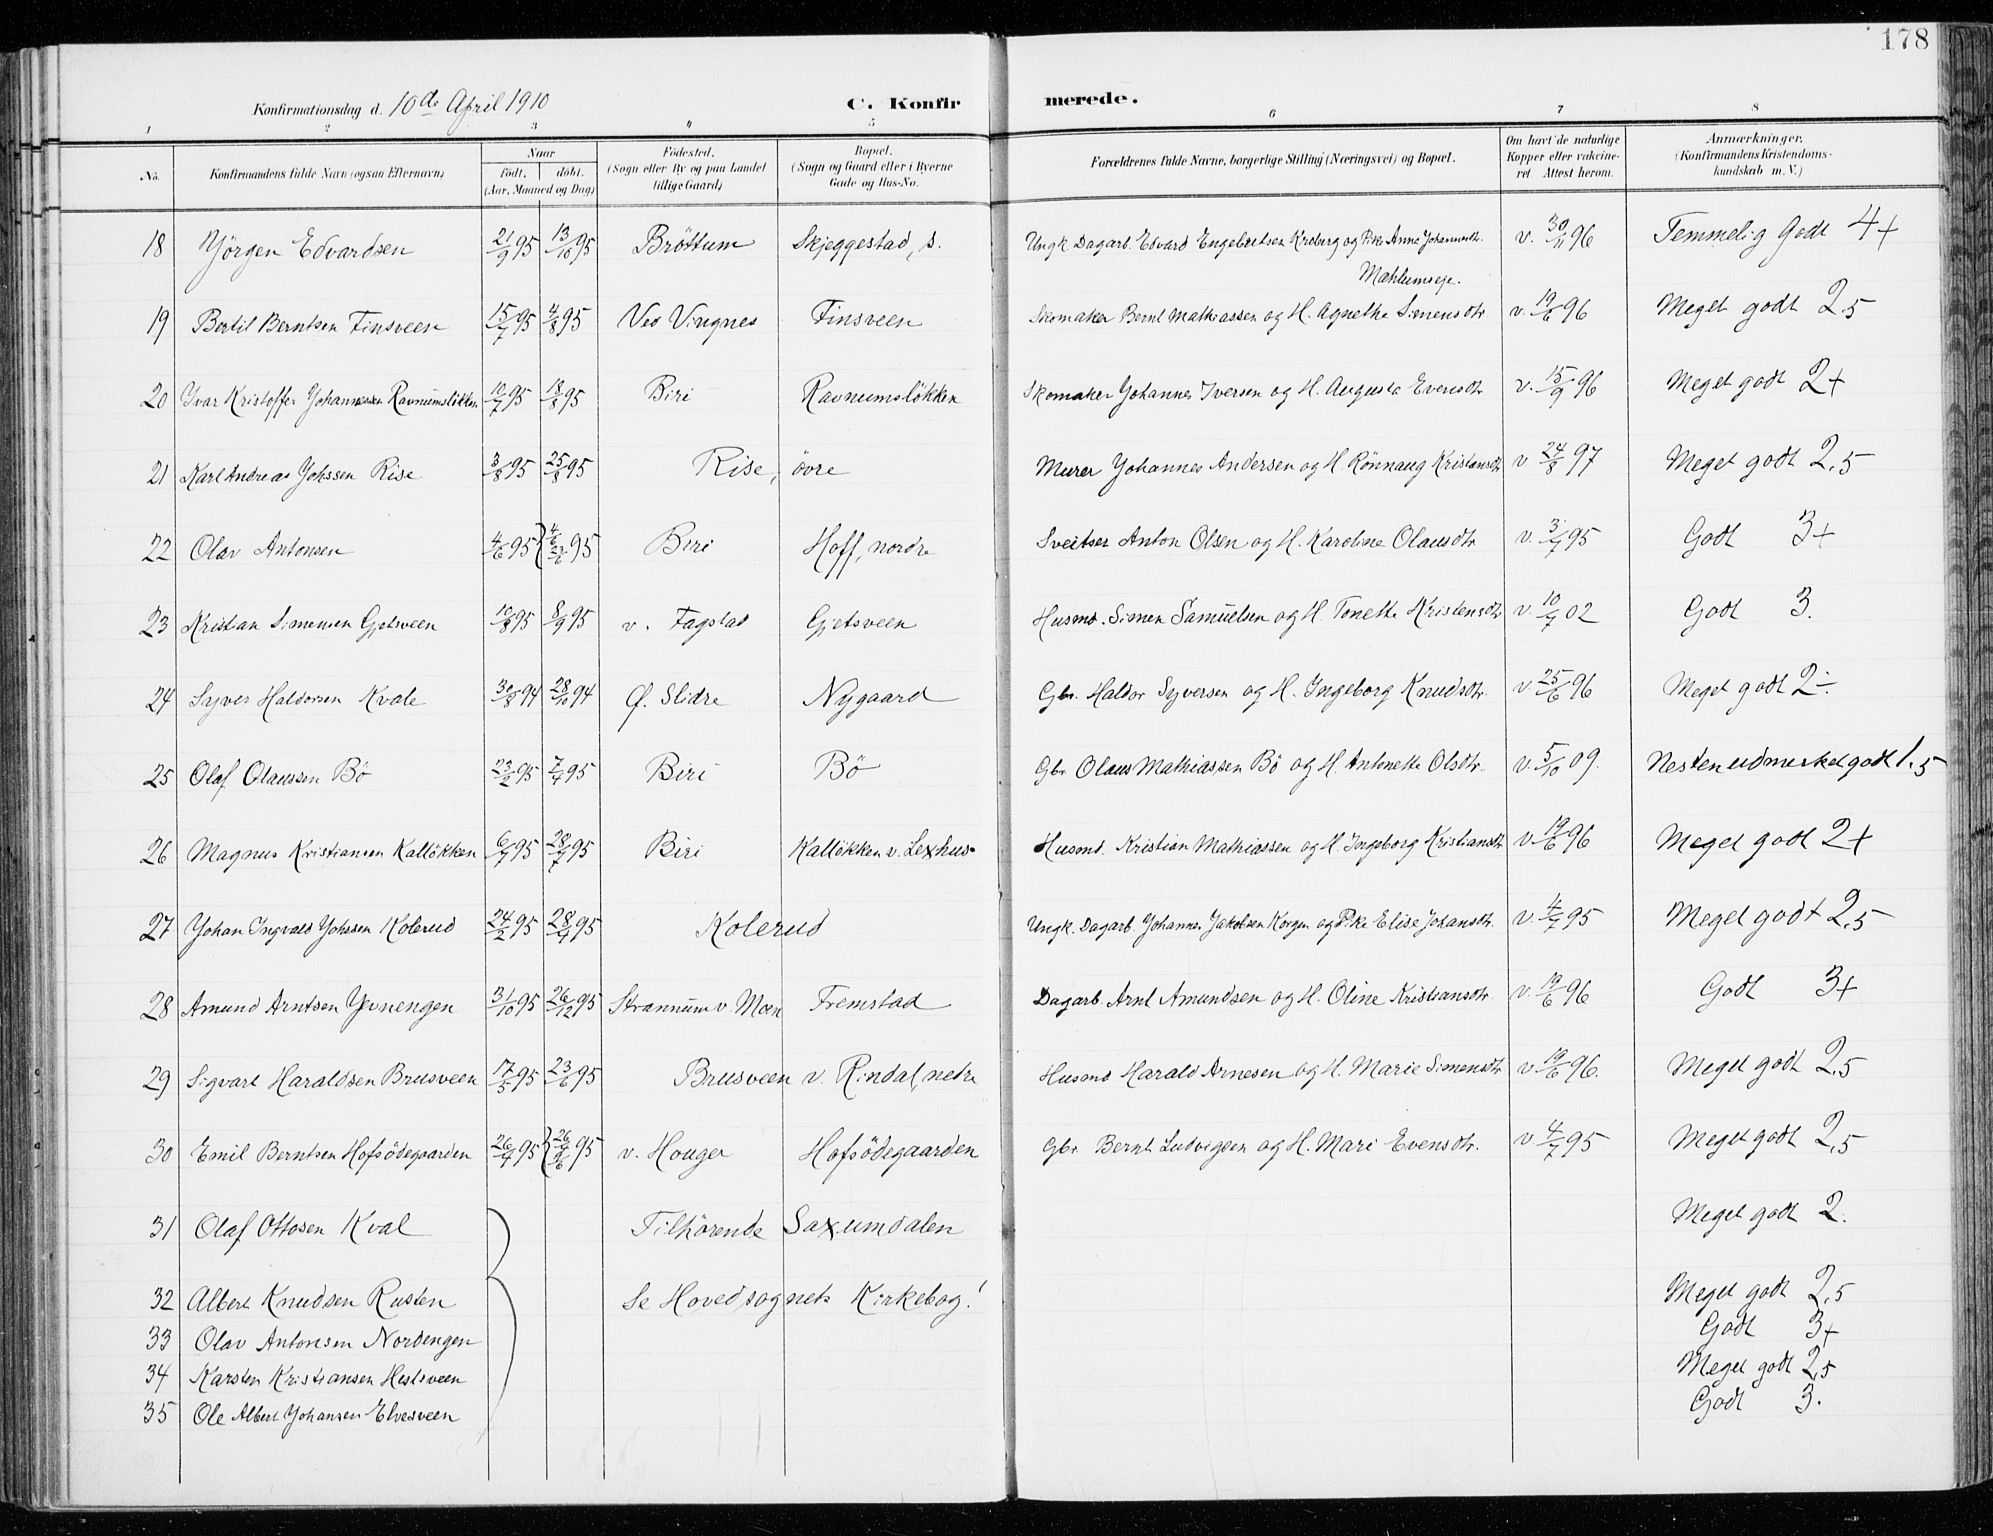 178
Konfirmationsdag d. 10de April 1910 C. Konfirmerede.
1 2 3 4 5 6 7 8
No. Konfirmandens fulde Navn (ogsaa Efternavn) Naar født. døbt. (Aar, Maaned og Dag) Fødested. (Sogn eller By og paa Landet tillige Gaard) Bopæl. (Sogn og Gaard eller i Byerne Gade og Hus-No. Forældrenes fulde Navne, borgerlige Stilling (Næringsvei) og Bopæl. Om havt de naturlige Kopper eller vakcineret. Attest herom. Anmærkninger. (Konfirmandens Kristendomskundskab m. V.)
18 Jörgen Edvardsen 21/9 95 13/10 95 Bröttum Skjeggestad, s. Ungk. Dagarb. Edvard Engebretsen Kreberg og Pike Anne Johannesdtr. v. 30/11 96 Temmelig Godt 4+
Mæhlumseje.
19 Bertil Berntsen Finsveen 15/7 95 4/8 95 Ved Vingnes Finsveen Skomaker Bernt Mathiassen og H. Agnethe Simensdtr. v. 19/6 96 Meget godt 2.5
20 Ivar Kristoffer Johannessen Ravnumslökken 10/7 95 18/8 95 Biri Ravnumslökken Skomaker Johannes Iversen og H. Augusta Evensdtr v. 15/9 96 Meget godt 2+
21 Karl Andreas Johssen Rise 3/8 95 25/8 95 Rise, övre Murer Johannes Andersen og H. Rönnaug Kristiansdtr v 24/8 97 Meget godt 2,5
22 Olav Antonsen 4/6 95 { 4/6 23/6 95 Biri Hoff, nordre Sveitser Anton Olsen og H. Karoline Olausdtr v. 3/7 95 Godt 3+
23 Kristian Simensen Gjetsveen 10/8 95 8/9 95 v. Fagstad Gjetsveen Husmd. Simen Samuelsen og H. Tonette Kristensdtr v. 10/7 02 Godt 3.
24 Syver Haldorsen Kvale 30/8 94 28/10 94 Ø. Slidre Nygaard Gbr. Haldor Syversen og H. Ingeborg Knudsdtr. v 25/6 96 Meget godt 2÷
25 Olaf Olaussen Bö 23/2 95 7/4 95 Biri Bö Gbr Olaus Mathiassen Bö og H. Antonette Olsdtr. v. 5/10 09. Nesten udmerket godt 1.5
26 Magnus Kristiansen Kallökken 6/7 95 28/7 95 Biri Kallökken v. Lexhus. Husmd. Kristian Mathiassen og H Ingeborg Kristiansdtr v 19/6 96 Meget godt 2+
27 Johan Ingvald Johssen Kolerud 24/2 95 28/4 95 Kolerud Ungk. Dagarb. Johannes Jakobsen Korgen og Pike Elise Johansdtr. v. 4/7 95 Meget godt 2,5
28 Amund Arntsen Jevnengen 31/10 95 26/12 95 Strannum v Moen Fremstad Dagarb. Arnt Amundsen og H. Oline Kristiansdtr. v. 19/6 96 Godt 3+
29 Sigvart Haraldsen Brusveen 17/5 95 23/6 95 Brusveen v. Rindal, nedre Husmd Harald Arnesen og H. Marie Simensdtr v 19/6 96. Meget godt 2,5
30 Emil Berntsen Hofsödegaarden 26/4 95 { 95 v. Houger Hofsödegaarden Gbr. Bernt Ludvigsen og H. Mari Evensdtr. v 4/7 95 Meget godt 2,5
31 Olaf Ottosen Kval Tilhörende Saxumdalen Meget godt 2.
32 Albert Knudsen Rusten Se Hovedsognets Kirkebog! Meget godt 2,5
33 Olav Antonsen Nordengen Godt 3+
34 Karsten Kristiansen Hestsveen Meget godt 2,5
35 Ole Albert Johansen Elvesveen Godt 3.